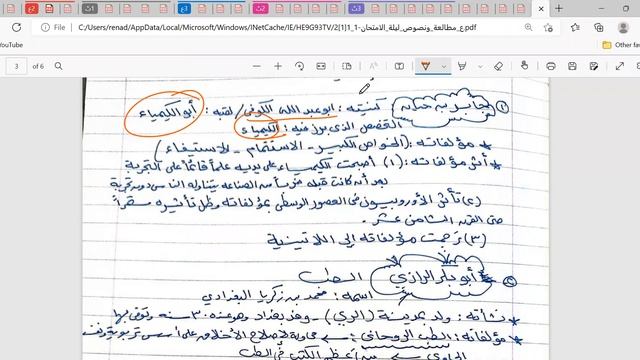 File | C:/Users/renad/AppData/Local/Microsoft/Windows/INetCache/IE/HE9G93TV/2[1]1_1-مطالعة_ونصوص_ليلة_الامتحان_ع.pdf
YouTube
Other favo
3 of 6
① جابر بن حيان كنيته: أبو عبد الله الكوفي / لقبه: أبو الكيمياء
التخصص الذي برز فيه: الكيمياء
* مؤلفاته: (الخواص الكبير - الاستتمام - الاستيفاء)
* أثر مؤلفاته: (١) أصبحت الكيمياء على يديه علماً قائماً على التجربة
بعد أن كانت قبله ضرباً من الصناعة يتناوله الناس دون تجربة
(٢) تأثر الأوروبيون في العصور الوسطى بمؤلفاته وظل تأثيره مستمراً
حتى القرن الثامن عشر.
(٣) تُرجمت مؤلفاته إلى اللاتينية
② أبو بكر الرازي الطب
اسمه: محمد بن زكريا البغدادي
* نشأته: ولد بمدينة (الري) - وفد بغداد وعمره ٣٠ سنه وتوفى بها
* مؤلفاته: الطب الروحاني: محاولة لإصلاح الأخلاق على أسس
الحاوي من أعظم الكتب في الطب